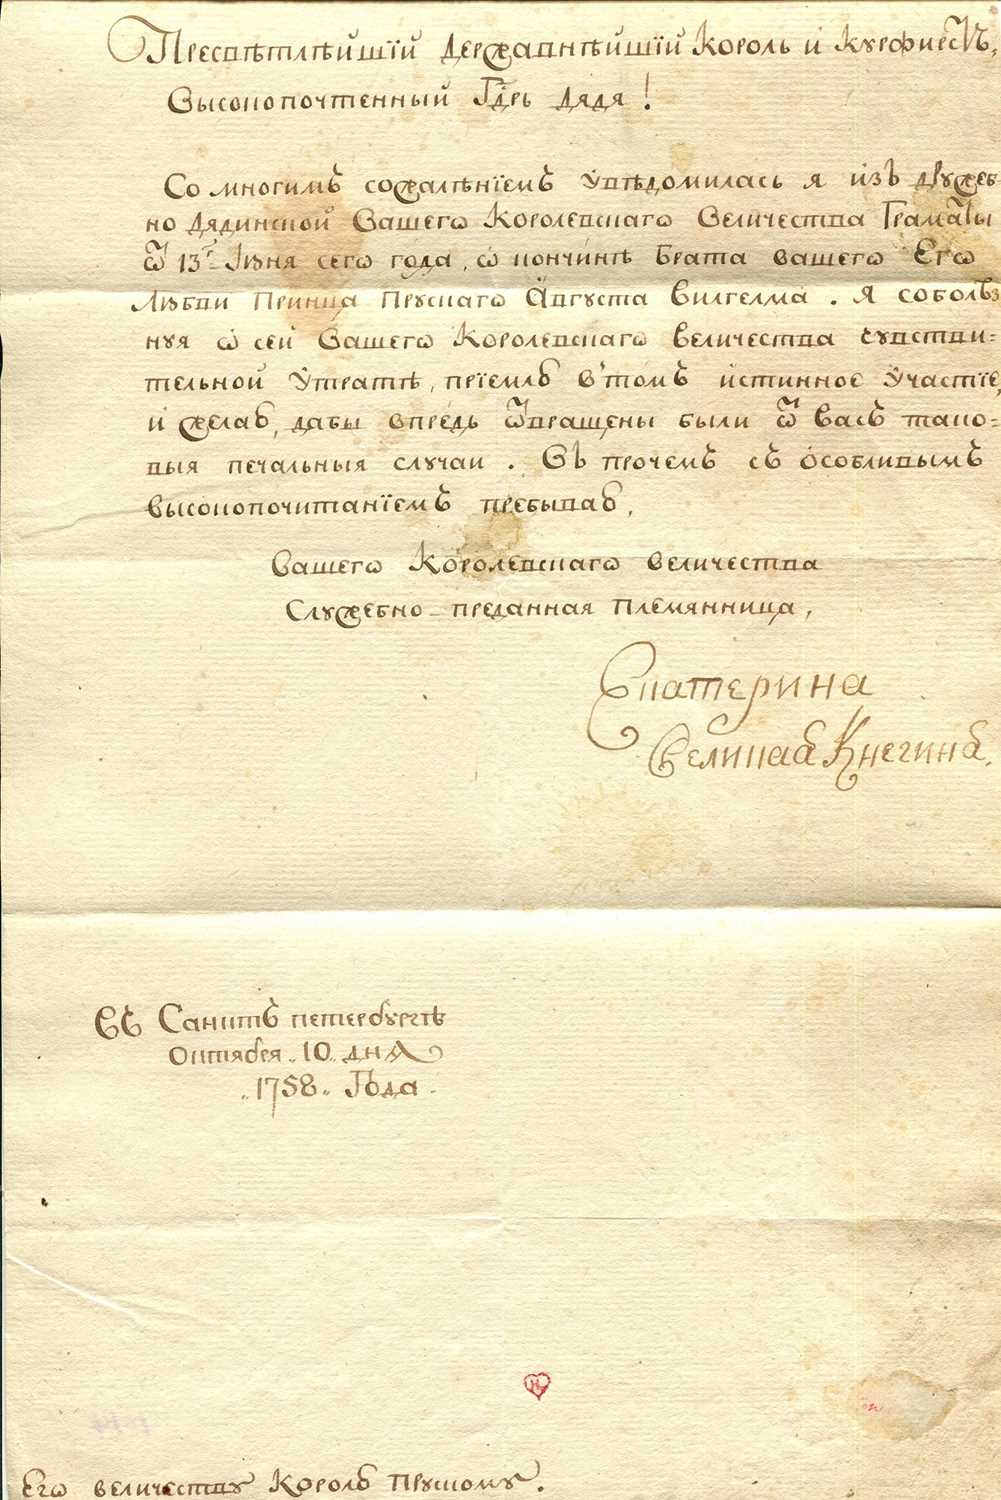 Пресвѣтлѣйшїй Державнѣйшїй Король и Курфирстъ,
Высокопочтенный Гдрь Дядя!
Со многимъ сожалѣнїемъ Увѣдомилась я изъ дружеб
но Дядинской Вашегѡ Королевскагѡ Величества Граматы
ѿ 13го Іюня сегѡ года, ѡ кончинѣ Брата вашегѡ Егѡ
Любви Принца Прускагѡ Августа Вилгелма. Я соболѣз
нуя ѡ сей Вашегѡ Королевскагѡ величества чувстви=
тельной Утратѣ, прїемлю в'томъ истинное Участїе,
и желаю, дабы впредь ѿвращены были ѿ Васъ тако=
выя печальныя случаи. Въ прочемъ съ особливымъ
высокопочитанїемъ пребываю,
Вашегѡ Королевскагѡ величества
Служебно-преданная Племянница,
Екатерина
Великая Княгиня.
Въ Санктъ петербургѣ
Октября „10„ дня
„1758„ Года.
Егѡ величеству Королю Прускому.